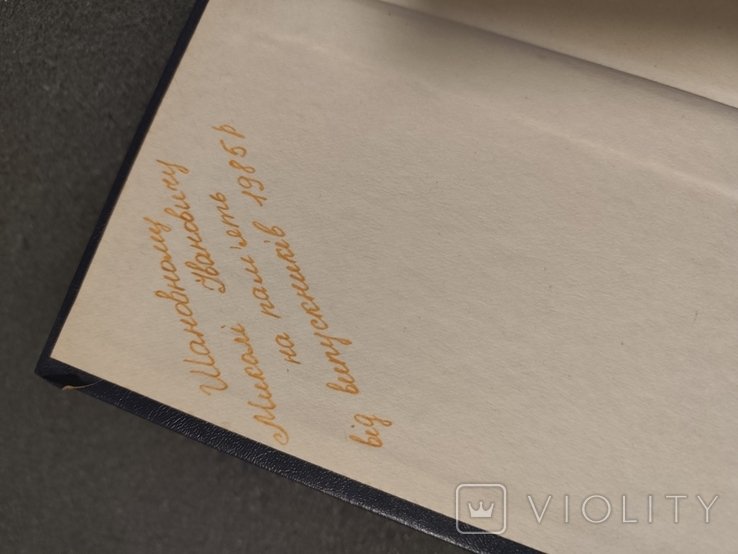 Шановному
Миколі Івановичу
на пам'ять
від випускників 1985 р
VIOLITY